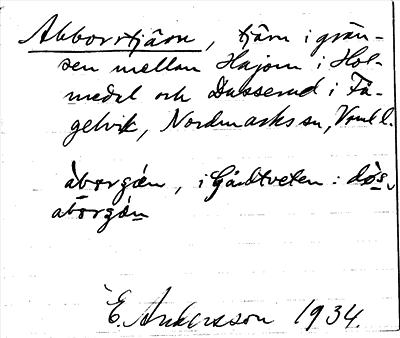 Abborrtjärn, tjärn i grän-
sen mellan Hajom i Hol-
medal och Dusserud i Få-
gelvik, Nordmarks sn, Vrml l.
àborgǽn, i Gårdtveten: dø̀s
aborgǽn
E. Andersson 1934.